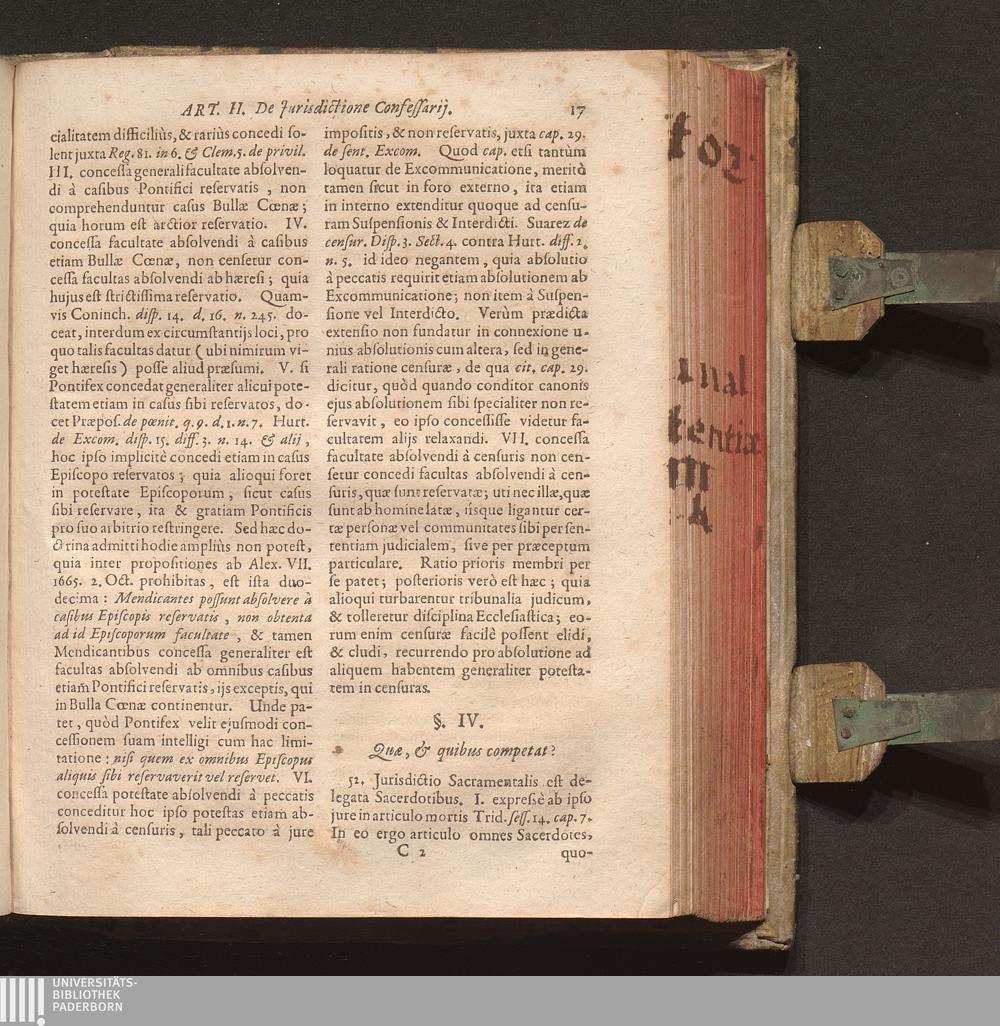 ART. II. De Jurisdictione Confessarij. 17
cialitatem difficiliùs, & rariùs concedi so-
lent juxta Reg. 81. in 6. & Clem. 5. de privil.
III. concessa generali facultate absolven-
di à casibus Pontifici reservatis, non
comprehenduntur casus Bullæ Cœnæ;
quia horum est arctior reservatio. IV.
concessa facultate absolvendi à casibus
etiam Bullæ Cœnæ, non censetur con-
cessa facultas absolvendi ab hæresi; quia
hujus est strictissima reservatio. Quam-
vis Coninch. disp. 14. d. 16. n. 245. do-
ceat, interdum ex circumstantijs loci, pro
quo talis facultas datur (ubi nimirum vi-
get hæresis) posse aliud præsumi. V. si
Pontifex concedat generaliter alicui pote-
statem etiam in casus sibi reservatos, do-
cet Præpos. de pœnit. q. 9. d. 1. n. 7. Hurt.
de Excom. disp. 15. diff. 3. n. 14. & alij,
hoc ipso implicitè concedi etiam in casus
Episcopo reservatos; quia alioqui foret
in potestate Episcoporum, sicut casus
sibi reservare, ita & gratiam Pontificis
pro suo arbitrio restringere. Sed hæc do-
ctrina admitti hodie ampliùs non potest,
quia inter propositiones ab Alex. VII.
1665. 2. Oct. prohibitas, est ista duo-
decima: Mendicantes possunt absolvere à
casibus Episcopis reservatis, non obtenta
ad id Episcoporum facultate, & tamen
Mendicantibus concessa generaliter est
facultas absolvendi ab omnibus casibus
etiam Pontifici reservatis, ijs exceptis, qui
in Bulla Cœnæ continentur. Unde pa-
tet, quòd Pontifex velit ejusmodi con-
cessionem suam intelligi cum hac limi-
tatione: nisi quem ex omnibus Episcopus
aliquis sibi reservaverit vel reservet. VI.
concessa potestate absolvendi à peccatis
conceditur hoc ipso potestas etiam ab-
solvendi à censuris, tali peccato à jure
impositis, & non reservatis, juxta cap. 29.
de sent. Excom. Quod cap. etsi tantùm
loquatur de Excommunicatione, meritò
tamen sicut in foro externo, ita etiam
in interno extenditur quoque ad censu-
ram Suspensionis & Interdicti. Suarez de
censur. Disp. 3. Sect. 4. contra Hurt. diff. 2.
n. 5. id ideo negantem, quia absolutio
à peccatis requirit etiam absolutionem ab
Excommunicatione; non item à Suspen-
sione vel Interdicto. Verùm prædicta
extensio non fundatur in connexione u-
nius absolutionis cum altera, sed in gene-
rali ratione censuræ, de qua cit. cap. 29.
dicitur, quòd quando conditor canonis
ejus absolutionem sibi specialiter non re-
servavit, eo ipso concessisse videtur fa-
cultatem alijs relaxandi. VII. concessa
facultate absolvendi à censuris non cen-
setur concedi facultas absolvendi à cen-
suris, quæ sunt reservatæ; uti nec illæ, quæ
sunt ab homine latæ, iisque ligantur cer-
tæ personæ vel communitates sibi per sen-
tentiam judicialem, sive per præceptum
particulare. Ratio prioris membri per
se patet; posterioris verò est hæc; quia
alioqui turbarentur tribunalia judicum,
& tolleretur disciplina Ecclesiastica; eo-
rum enim censuræ facilè possent elidi,
& cludi, recurrendo pro absolutione ad
aliquem habentem generaliter potesta-
tem in censuras.
§. IV.
Quæ, & quibus competat?
52. Jurisdictio Sacramentalis est de-
legata Sacerdotibus. I. expressè ab ipso
jure in articulo mortis Trid. sess. 14. cap. 7.
In eo ergo articulo omnes Sacerdotes,
C 2 quo-
UNIVERSITÄTS-
BIBLIOTHEK
PADERBORN